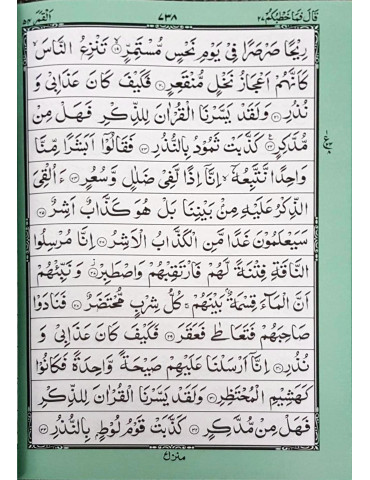 قَالَ فَمَا خَطْبُكُمْ ٢٧ ٧٣٨ اَلْقَمَر ٥٤
رِيْحًا صَرْصَرًا فِيْ يَوْمِ نَحْسٍ مُّسْتَمِرٍّ ۝١٩ تَنْزِعُ النَّاسَ
كَاَنَّهُمْ اَعْجَازُ نَخْلٍ مُّنْقَعِرٍ ۝٢٠ فَكَيْفَ كَانَ عَذَابِيْ وَ
نُذُرِ ۝٢١ وَلَقَدْ يَسَّرْنَا الْقُرْاٰنَ لِلذِّكْرِ فَهَلْ مِنْ
مُّدَّكِرٍ ۝٢٢ كَذَّبَتْ ثَمُوْدُ بِالنُّذُرِ ۝٢٣ فَقَالُوْٓا اَبَشَرًا مِّنَّا
وَاحِدًا نَّتَّبِعُهٗٓ ۙ اِنَّآ اِذًا لَّفِيْ ضَلٰلٍ وَّسُعُرٍ ۝٢٤ ءَاُلْقِيَ
الذِّكْرُ عَلَيْهِ مِنْۢ بَيْنِنَا بَلْ هُوَ كَذَّابٌ اَشِرٌ ۝٢٥
سَيَعْلَمُوْنَ غَدًا مَّنِ الْكَذَّابُ الْاَشِرُ ۝٢٦ اِنَّا مُرْسِلُوا
النَّاقَةِ فِتْنَةً لَّهُمْ فَارْتَقِبْهُمْ وَاصْطَبِرْ ۝٢٧ وَنَبِّئْهُمْ
اَنَّ الْمَآءَ قِسْمَةٌۢ بَيْنَهُمْ ۚ كُلُّ شِرْبٍ مُّحْتَضَرٌ ۝٢٨ فَنَادَوْا
صَاحِبَهُمْ فَتَعَاطٰى فَعَقَرَ ۝٢٩ فَكَيْفَ كَانَ عَذَابِيْ وَ
نُذُرِ ۝٣٠ اِنَّآ اَرْسَلْنَا عَلَيْهِمْ صَيْحَةً وَّاحِدَةً فَكَانُوْا
كَهَشِيْمِ الْمُحْتَظِرِ ۝٣١ وَلَقَدْ يَسَّرْنَا الْقُرْاٰنَ لِلذِّكْرِ
فَهَلْ مِنْ مُّدَّكِرٍ ۝٣٢ كَذَّبَتْ قَوْمُ لُوْطٍۭ بِالنُّذُرِ ۝٣٣
منزل